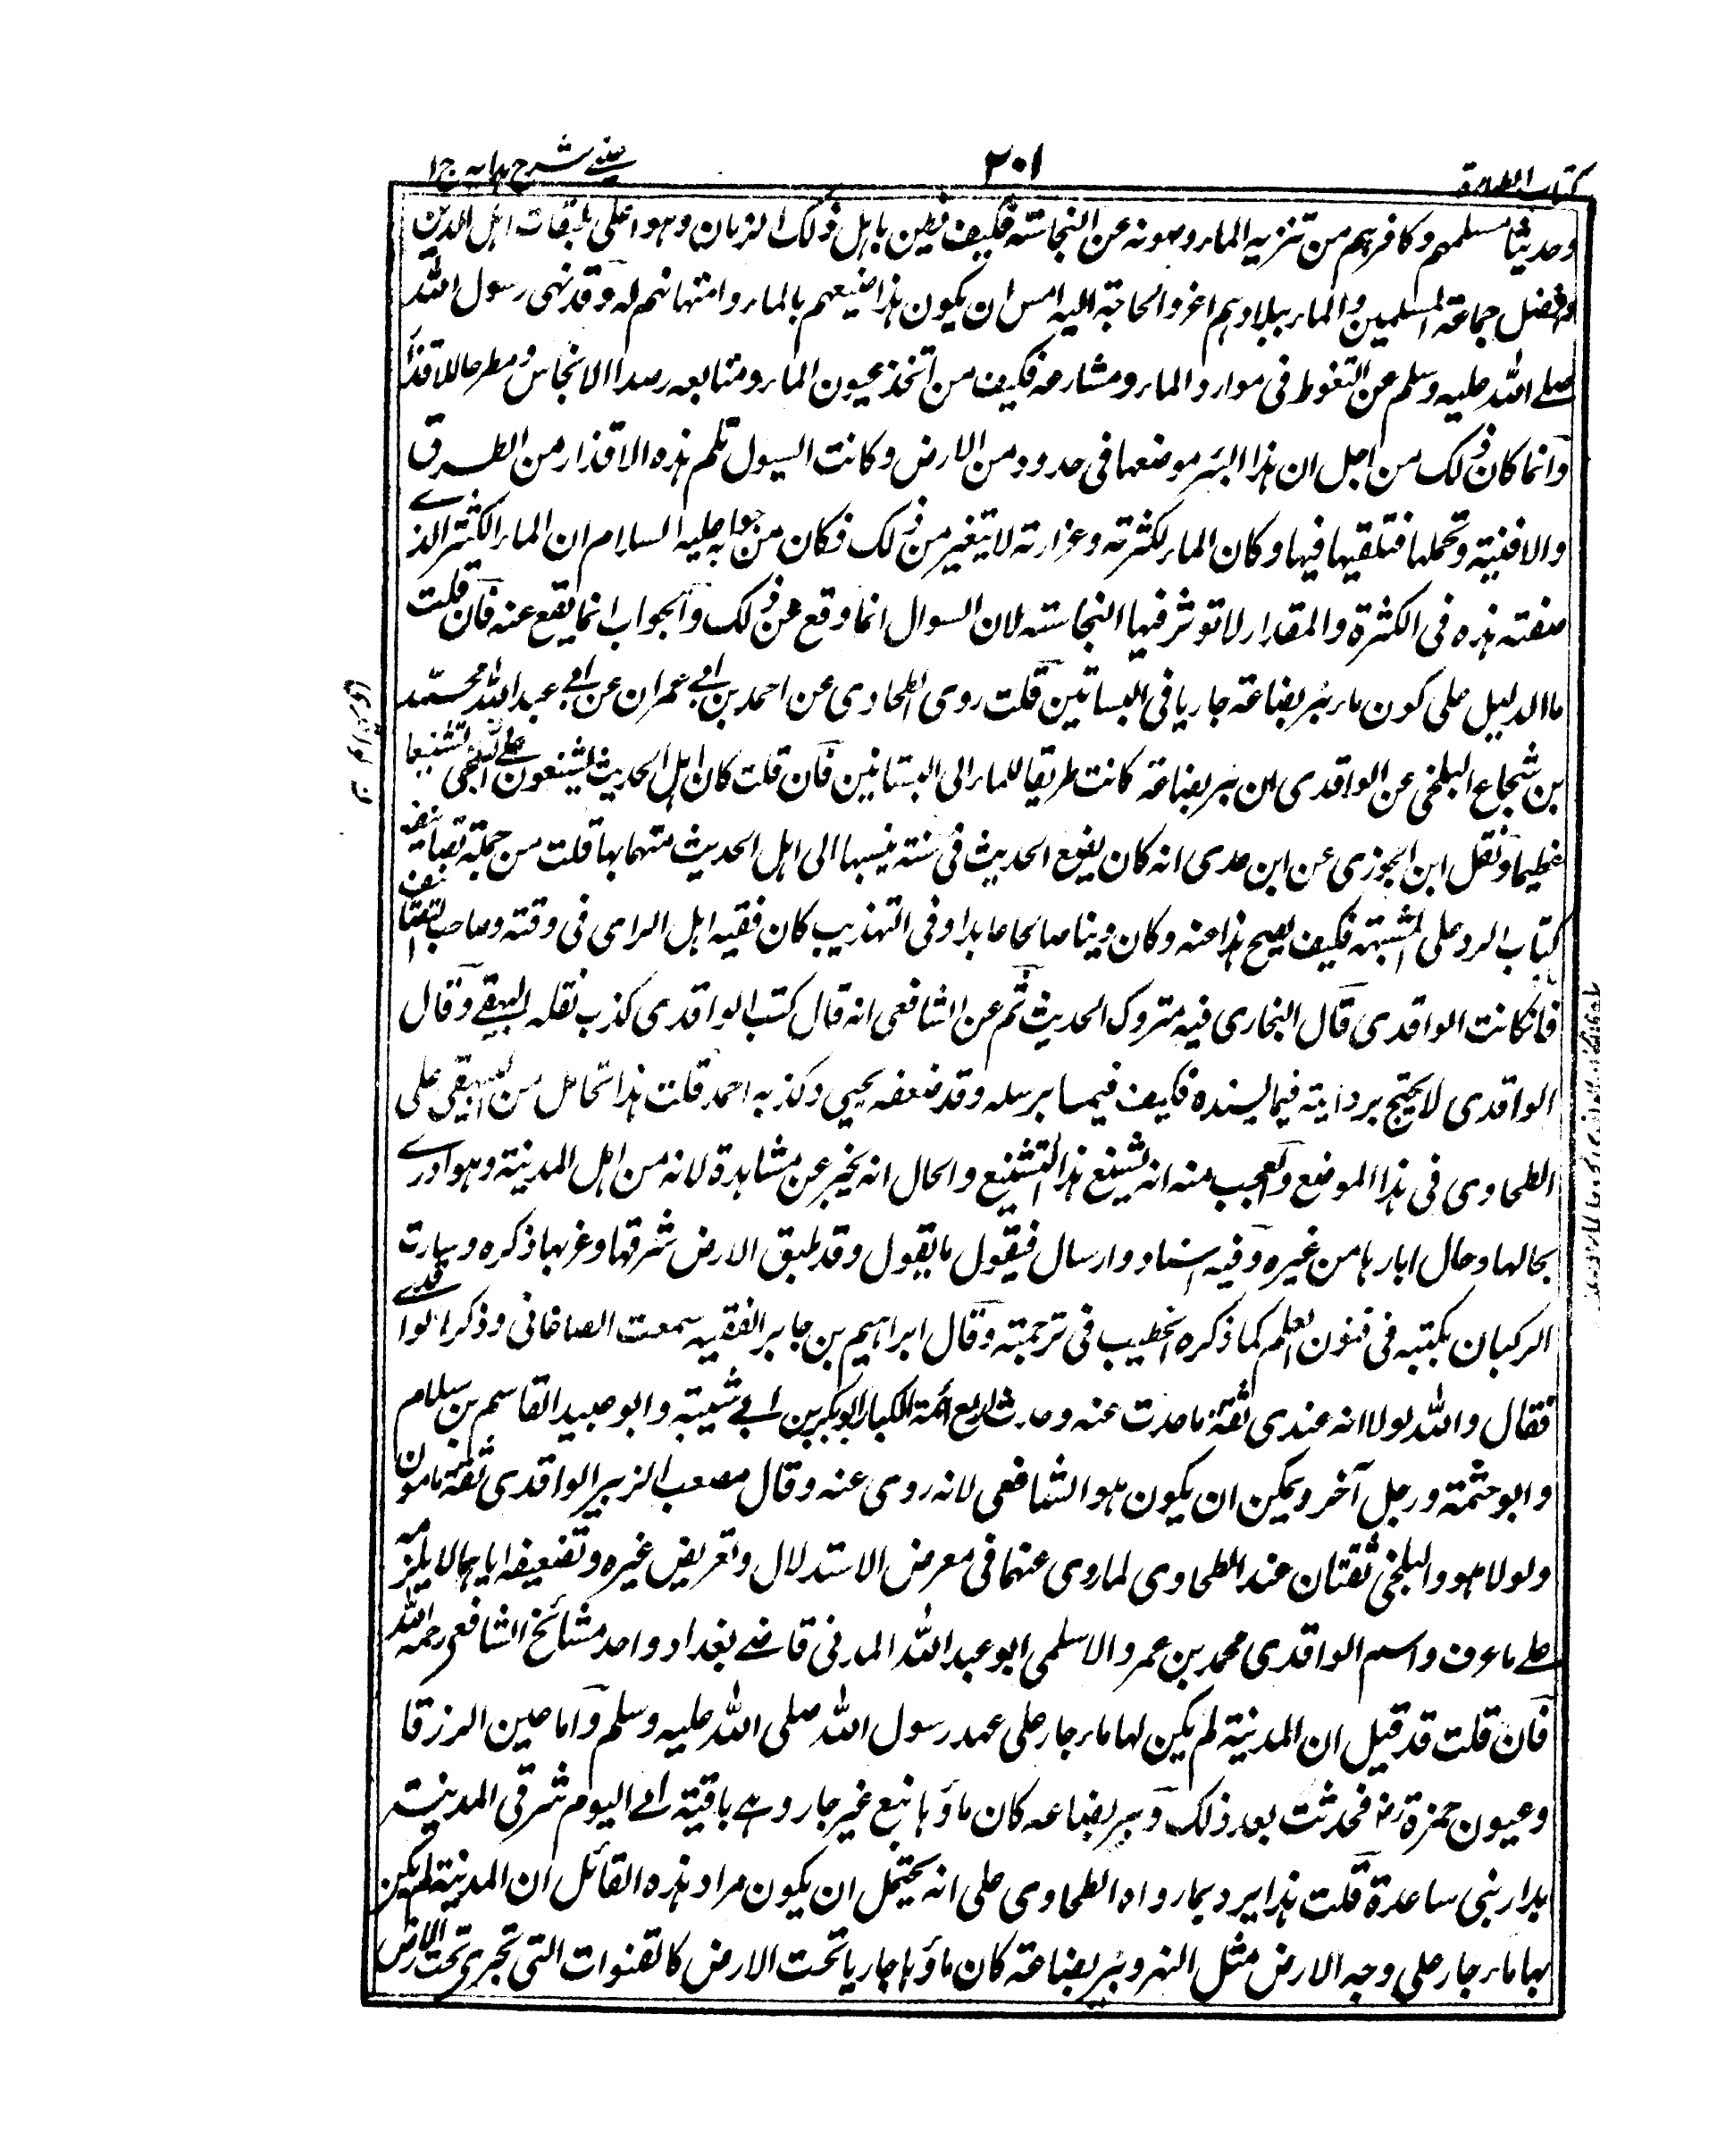 كتاب الطهارة
٢٠١
عيني شرح هدايه ج ١
وحديثا مسلمهم وكافرهم من تنزيه الماء وصونه عن النجاسته فكيف يظن باهل ذلك الزمان وهو اعلى طبقات اهل الدين
وافضل جماعة المسلمين والماء ببلادهم اعز والحاجة اليه امس ان يكون هذا صنيعهم بالماء وامتهانهم له وقد نهى رسول الله
صلى الله عليه وسلم عن التغوط فى موارد الماء ومشارعه فكيف من اتخذ عيون الماء ومنابعه رصدا الانجاس ومطرحا للاقذار
وانما كان ذلك من اجل ان هذا البئر موضعها فى حدود من الارض وكانت السيول تلم هذه الاقذار من الطرق
والافنية وتحملها فتلقيها فيها وكان الماء لكثرته وغزارته لا يتغير من ذلك فكان من جوابه عليه السلام ان الماء الكثير الذى
صفته هذه فى الكثرة والمقدار لا توثر فيها النجاسته لان السوال انما وقع عن ذلك والجواب انما يقع عنه فان قلت
ما الدليل على كون ماء بئر بضاعة جاريا فى البساتين قلت روى الطحاوى عن احمد بن ابى عمران عن ابى عبد الله محمد
بن شجاع البلخى عن الواقدى ان بئر بضاعة كانت طريقا للماء الى البساتين فان قلت كان اهل الحديث يشنعون على الثلجى تشنيعا
عظيما ونقل ابن الجوزى عن ابن عدى انه كان يضع الحديث فى سنته ينسبها الى اهل الحديث متهما بها قلت من جملة تصانيفه
كتاب الرد على المشبهة فكيف يصح هذا عنه وكان دينا صالحا عابدا وفى التهذيب كان فقيه اهل الراى فى وقته وصاحب التصانيف
فان كانت الواقدى قال البخارى فيه متروك الحديث ثم عن الشافعى انه قال كتب الواقدى كذب نقله البيهقى وقال
الواقدى لا يحتج بروايته فيما يسنده فكيف فيما يرسله وقد ضعفه يحيى وكذبه احمد قلت هذا تحامل من البيهقى على
الطحاوى فى هذا الموضع والعجب منه انه يشنع هذا التشنيع والحال انه يخبر عن مشاهدة لانه من اهل المدينة وهو ادرى
بحالها وحال ابارها من غيره وفيه اسناد وارسال فيقول ما يقول وقد طبق الارض شرقها وغربها ذكره وسارت
الركبان بكتبه فى فنون العلم كما ذكره الخطيب فى ترجمته وقال ابراهيم بن جابر الفقيه سمعت الصاغانى وذكر الواقدى
فقال والله لولا انه عندى ثقة ما حدثت عنه وحدث اربع ائمة الكبار ابو بكر بن ابى شيبة وابو عبيد القاسم بن سلام
وابو خثيمة ورجل آخر ويمكن ان يكون هو الشافعى لانه روى عنه وقال مصعب الزبير الواقدى ثقة مامون
ولولا هو والبلخى ثقتان عند الطحاوى لما روى عنهما فى معرض الاستدلال وتعريض غيره وتضعيفه اياهما لا يلزمه
على ما عرف واسم الواقدى محمد بن عمر والاسلمى ابو عبد الله المدنى قاضى بغداد واحد مشائخ الشافعى رحمه الله
فان قلت قد قيل ان المدينة لم يكن لها ماء جار على عهد رسول الله صلى الله عليه وسلم واما عين الزرقا
وعيون حمزة رض فحدثت بعد ذلك وبير بضاعه كان ماؤها نبع غير جار وهى باقية الى اليوم شرقى المدينة
بدار بنى ساعدة قلت هذا يرد بما رواه الطحاوى على انه يحتمل ان يكون مراد هذه القائل ان المدينة لم يكن
بها ماء جار على وجه الارض مثل النهر وبئر بضاعة كان ماؤها جاريا تحت الارض كالقنوات التى تجرى تحت الارض